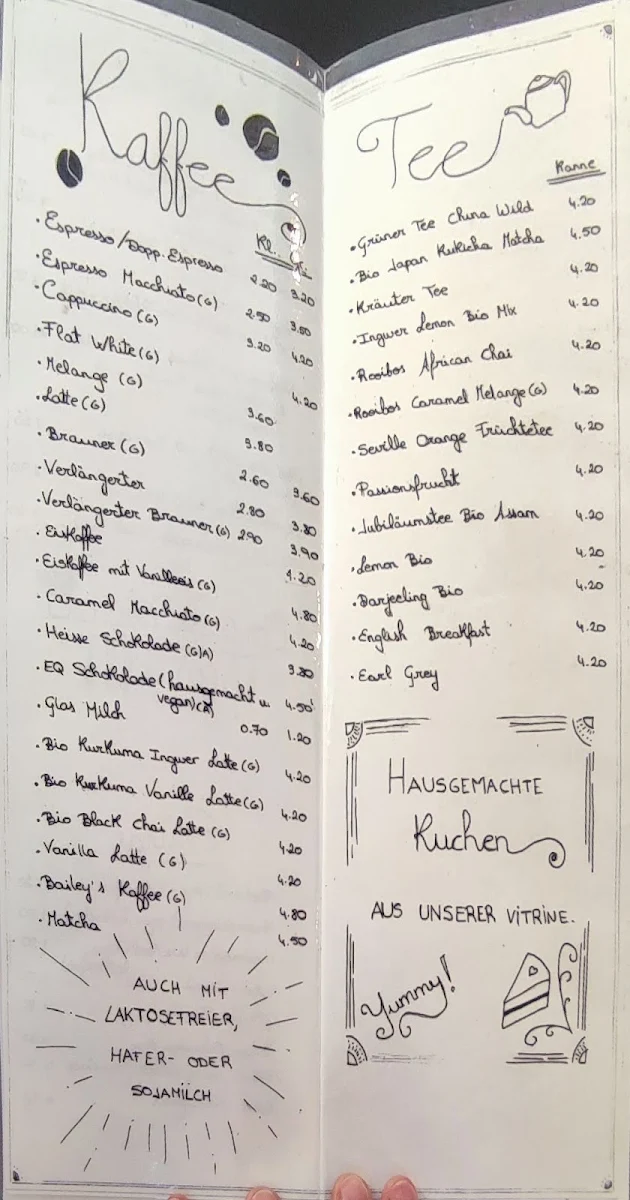 Kaffee
Kl. Gr.
· Espresso/Dopp. Espresso 2.20 3.20
· Espresso Macchiato (G) 2.50 3.50
· Cappuccino (G) 3.20 4.20
· Flat White (G) 4.20
· Melange (G) 3.60
· Latte (G) 3.80
· Brauner (G) 2.60 3.60
· Verlängerter 2.80 3.80
· Verlängerter Brauner (G) 2.90 3.90
· Eiskaffee 4.20
· Eiskaffee mit Vanilleeis (G) 4.80
· Caramel Macchiato (G) 4.20
· Heisse Schokolade (G)A) 3.80
· EQ Schokolade (hausgemacht u. 4.50
vegan) (A)
· Glas Milch 0.70 1.20
· Bio Kurkuma Ingwer Latte (G) 4.20
· Bio Kurkuma Vanille Latte (G) 4.20
· Bio Black Chai Latte (G) 4.20
· Vanilla Latte (G) 4.20
· Bailey's Kaffee (G) 4.80
· Matcha 4.50
AUCH MIT
LAKTOSEFREIER,
HAFER- ODER
SOJAMILCH
Tee
Kanne
· Grüner Tee China Wild 4.20
· Bio Japan Kukicha Matcha 4.50
· Kräuter Tee 4.20
· Ingwer Lemon Bio Mix 4.20
· Rooibos African Chai 4.20
· Rooibos Caramel Melange (G) 4.20
· Seville Orange Früchtetee 4.20
· Passionsfrucht 4.20
· Jubiläumstee Bio Assam 4.20
· Lemon Bio 4.20
· Darjeeling Bio 4.20
· English Breakfast 4.20
· Earl Grey 4.20
HAUSGEMACHTE
Kuchen
AUS UNSERER VITRINE.
Yummy!